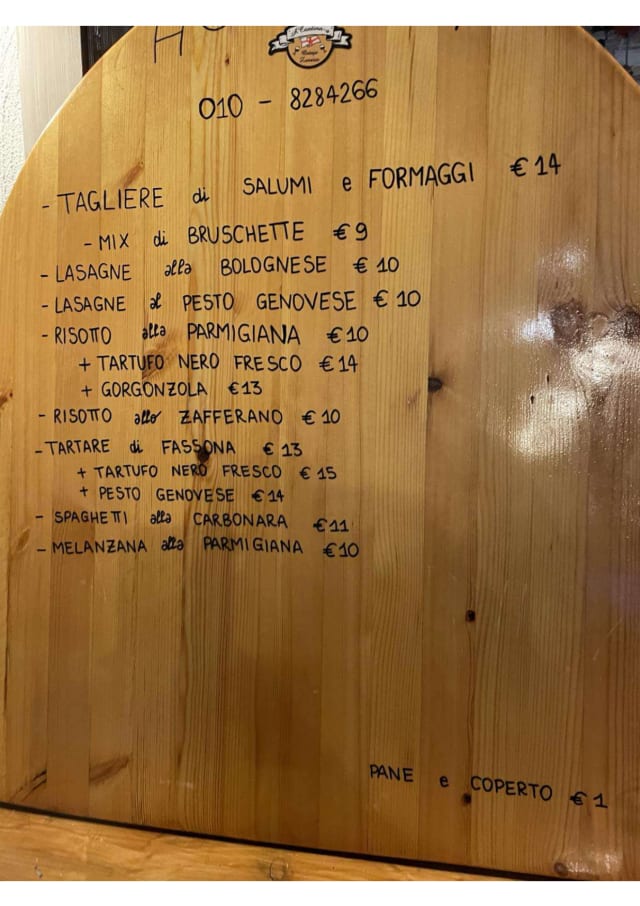 010 - 8284266
- TAGLIERE di SALUMI e FORMAGGI € 14
- MIX di BRUSCHETTE € 9
- LASAGNE alla BOLOGNESE € 10
- LASAGNE al PESTO GENOVESE € 10
- RISOTTO alla PARMIGIANA € 10
+ TARTUFO NERO FRESCO € 14
+ GORGONZOLA € 13
- RISOTTO allo ZAFFERANO € 10
- TARTARE di FASSONA € 13
+ TARTUFO NERO FRESCO € 15
+ PESTO GENOVESE € 14
- SPAGHETTI alla CARBONARA € 11
- MELANZANA alla PARMIGIANA € 10
PANE e COPERTO € 1